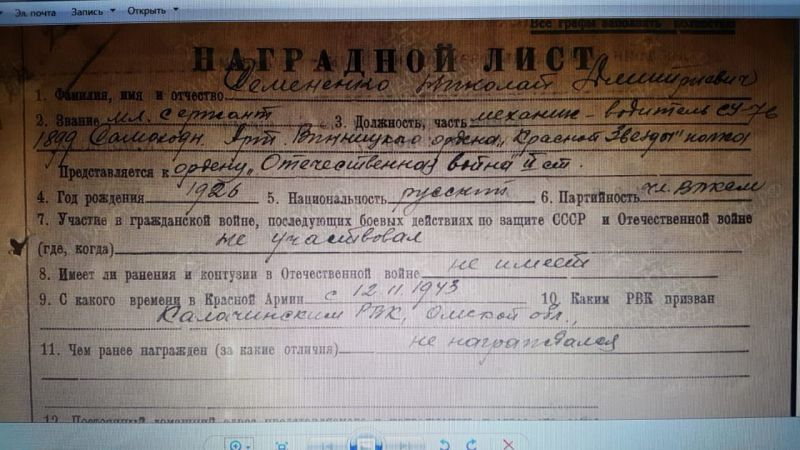 Эл. почта Запись Открыть
Все графы заполнять полностью
НАГРАДНОЙ ЛИСТ
1. Фамилия, имя и отчество Семененко Николай Дмитриевич
2. Звание мл. сержант 3. Должность, часть механик-водитель СУ-76
1899 Самоходн. Арт. ордена "Красной Звезды" полка
Представляется к ордену "Отечественная война" II ст.
4. Год рождения 1926 5. Национальность русский 6. Партийность чл. ВЛКСМ
7. Участие в гражданской войне, последующих боевых действиях по защите СССР и Отечественной войне
(где, когда) не участвовал
8. Имеет ли ранения и контузии в Отечественной войне не имеет
9. С какого времени в Красной Армии с 12.11.1943 10. Каким РВК призван
Калачинским РВК, Омской обл.,
11. Чем ранее награжден (за какие отличия) не награждался